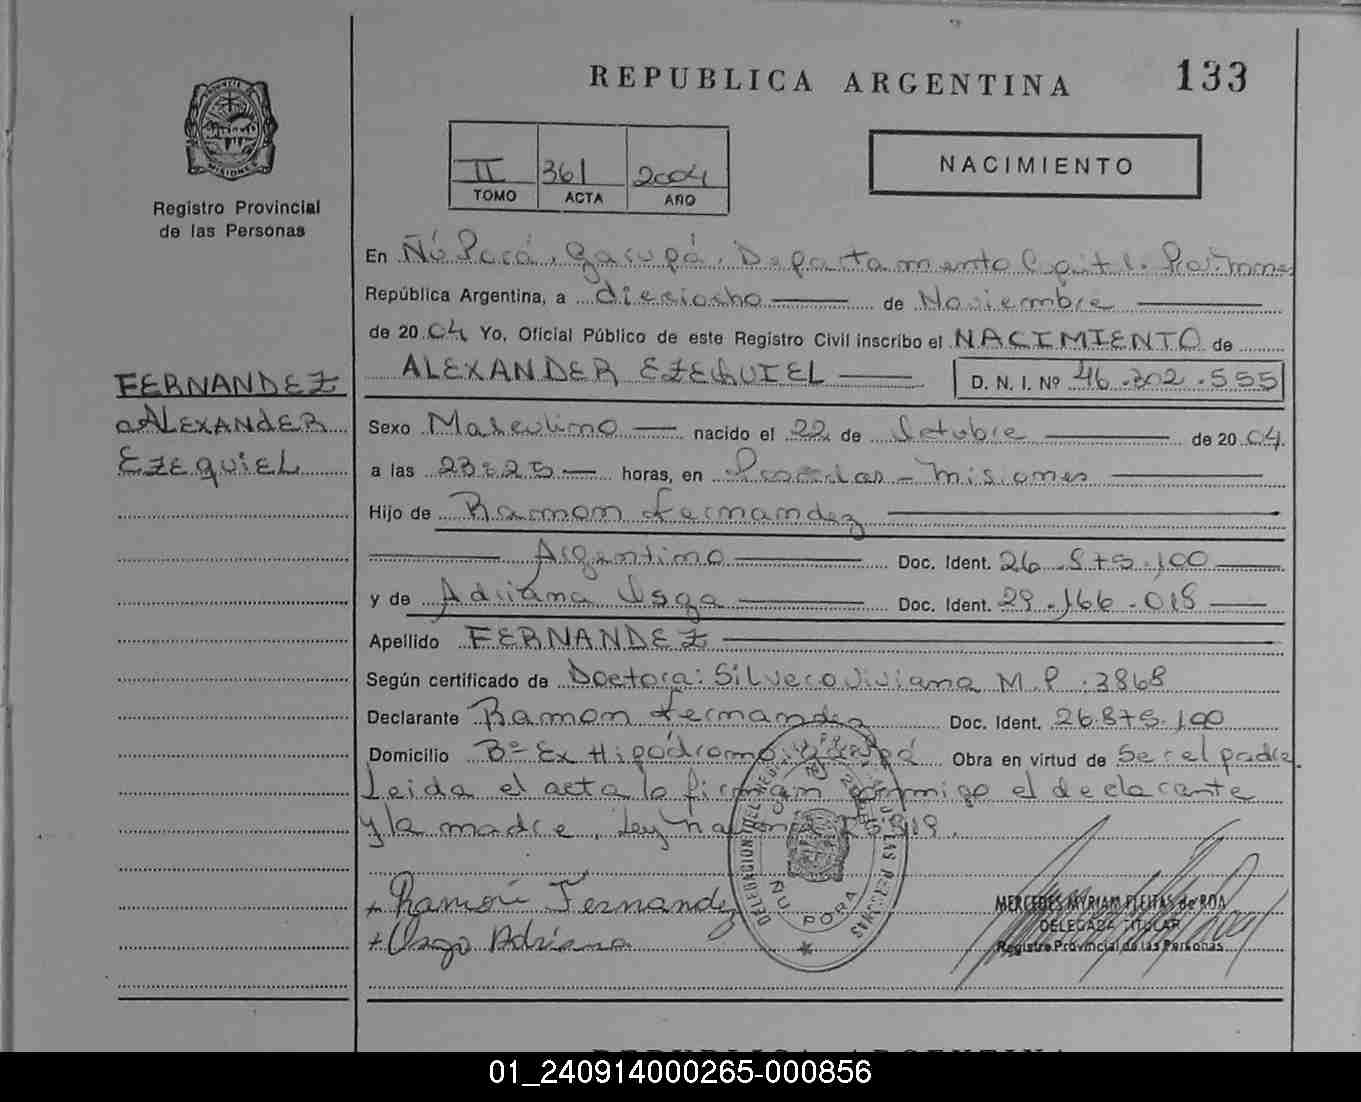 REPUBLICA ARGENTINA 133
II 361 2004
TOMO ACTA AÑO
NACIMIENTO
MISIONES
Registro Provincial
de las Personas
FERNANDEZ
ALEXANDER
EZEQUIEL
En Ñú Porá, Garupá, Departamento Capital
República Argentina, a dieciocho de Noviembre
de 2004 Yo, Oficial Público de este Registro Civil inscribo el NACIMIENTO de
ALEXANDER EZEQUIEL D. N. I. Nº 46.302.555
Sexo Masculino nacido el 22 de Octubre de 2004
a las 23:25 horas, en Posadas - Misiones
Hijo de Ramon Fernandez
Argentino Doc. Ident. 26.875.100
y de Adriana Doc. Ident. 29.166.018
Apellido FERNANDEZ
Según certificado de Doctora: Silvero Viviana M.P. 3868
Declarante Ramon Fernandez Doc. Ident. 26.875.100
Domicilio Bº Ex Hipódromo, Garupá Obra en virtud de Ser el padre.
Leida el acta lo firman conmigo el declarante
y la madre. Ley
Ramón Fernandez
Adriana
ÑU PORA
MERCEDES MYRIAM FLEITAS de ROA
DELEGADA TITULAR
Registro Provincial de las Personas
REPUBLICA ARGENTINA
01_240914000265-000856